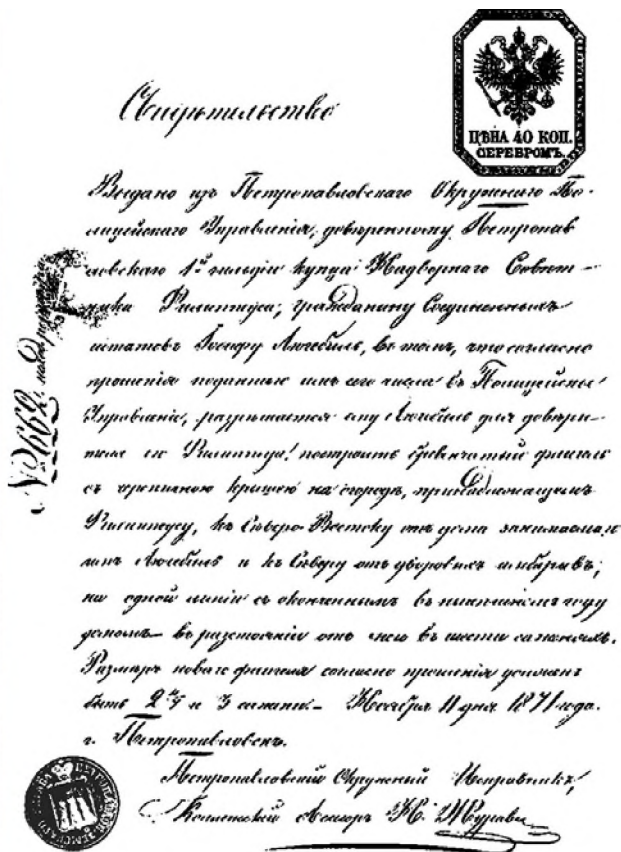 Свидѣтельство
ЦѢНА 40 КОП.
СЕРЕБРОМЪ.
Выдано изъ Петропавловскаго Окружнаго По-
лицейскаго Управленія, довѣренному Петропав
ловскаго 1й гильдіи купца Надворнаго Совѣт-
ника Филиппеуса, гражданину Соединенныхъ
штатовъ Іосифу Люгебиль, въ томъ, что согласно
прошенія поданнаго имъ сего числа въ Полицейское
Управленіе, разрѣшается ему Люгебиль для довѣри-
теля его Филиппеуса построить бревенчатый флигель
съ черепичною крышею на огородѣ, принадлежащемъ
Филиппеусу, къ Сѣверо-Востоку отъ дома занимаемаго
имъ Люгебиль и къ Сѣверу отъ дворовыхъ амбаровъ;
на одной линіи съ оконченнымъ въ нынѣшнемъ году
домомъ въ разстояніи отъ него въ шести саженяхъ.
Размѣръ новаго флигеля согласно прошенія долженъ
быть и 3 сажени. Ноября 11 дня 1871 года.
г. Петропавловскъ.
Петропавловскій Окружный Исправникъ,
Коллежскій Асессоръ Н.
№ 662